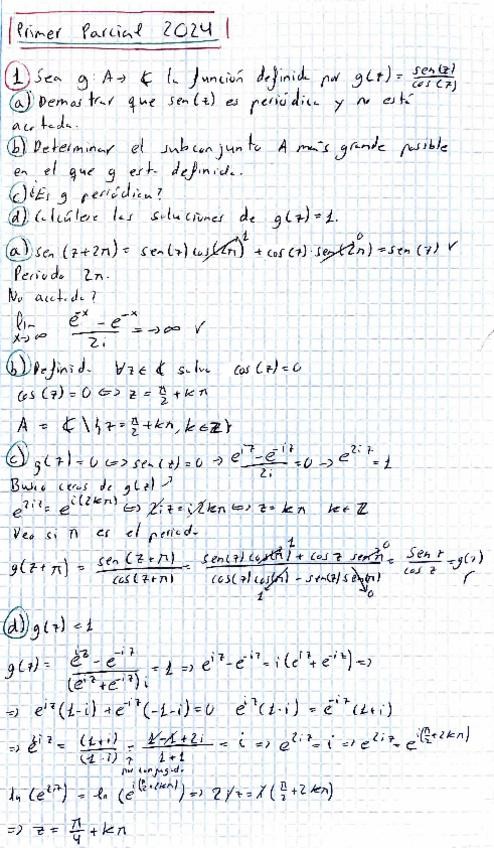 Primer Parcial 2024
1 Sea g: A→ ₵ la función definida por g(z) = sen(z)/cos(z)
a) Demostrar que sen(z) es periódica y no está
acotada.
b) Determinar el subconjunto A más grande posible
en el que g está definida.
c) ¿Es g periódica?
d) Calcúlese las soluciones de g(z)=1.
a) sen(z+2π) = sen(z)cos(2π)^1 + cos(z)·sen(2π)^0 = sen(z) √
Periodo 2π.
No acotada?
lim x→∞ (e^-x - e^-x)/2i = -∞ √
b) Definida ∀z∈₵ salvo cos(z)=0
cos(z)=0 ⇔ z = π/2 + kπ
A = ₵ \ {z = π/2 + kπ, k∈Z}
c) g(z)=0 ⇔ sen(z)=0 → (e^iz - e^-iz)/2i = 0 → e^2iz = 1
Busco ceros de g(z)
e^2iz = e^i(2kπ) ⇔ 2iz = i2kπ ⇔ z = kπ k∈Z
Veo si π es el periodo
g(z+π) = sen(z+π)/cos(z+π) = (sen(z)cos(π)^1 + cos z sen(π)^0)/(cos(z)cos(π) - sen(z)sen(π)) = sen z/cos z = g(z) √
1 0
d) g(z)=1
g(z) = (e^iz - e^-iz)/((e^iz + e^-iz)i) = 1 ⇒ e^iz - e^-iz = i(e^iz + e^-iz) ⇒
⇒ e^iz(1-i) + e^-iz(-1-i) = 0 e^iz(1-i) = e^-iz(1+i)
⇒ e^2iz = (1+i)/(1-i) = (1-1+2i)/(1+1) = i ⇒ e^2iz = i ⇒ e^2iz = e^i(π/2+2kπ)
por conjugado
ln(e^2iz) = ln(e^i(π/2+2kπ)) ⇒ 2iz = i(π/2 + 2kπ)
⇒ z = π/4 + kπ